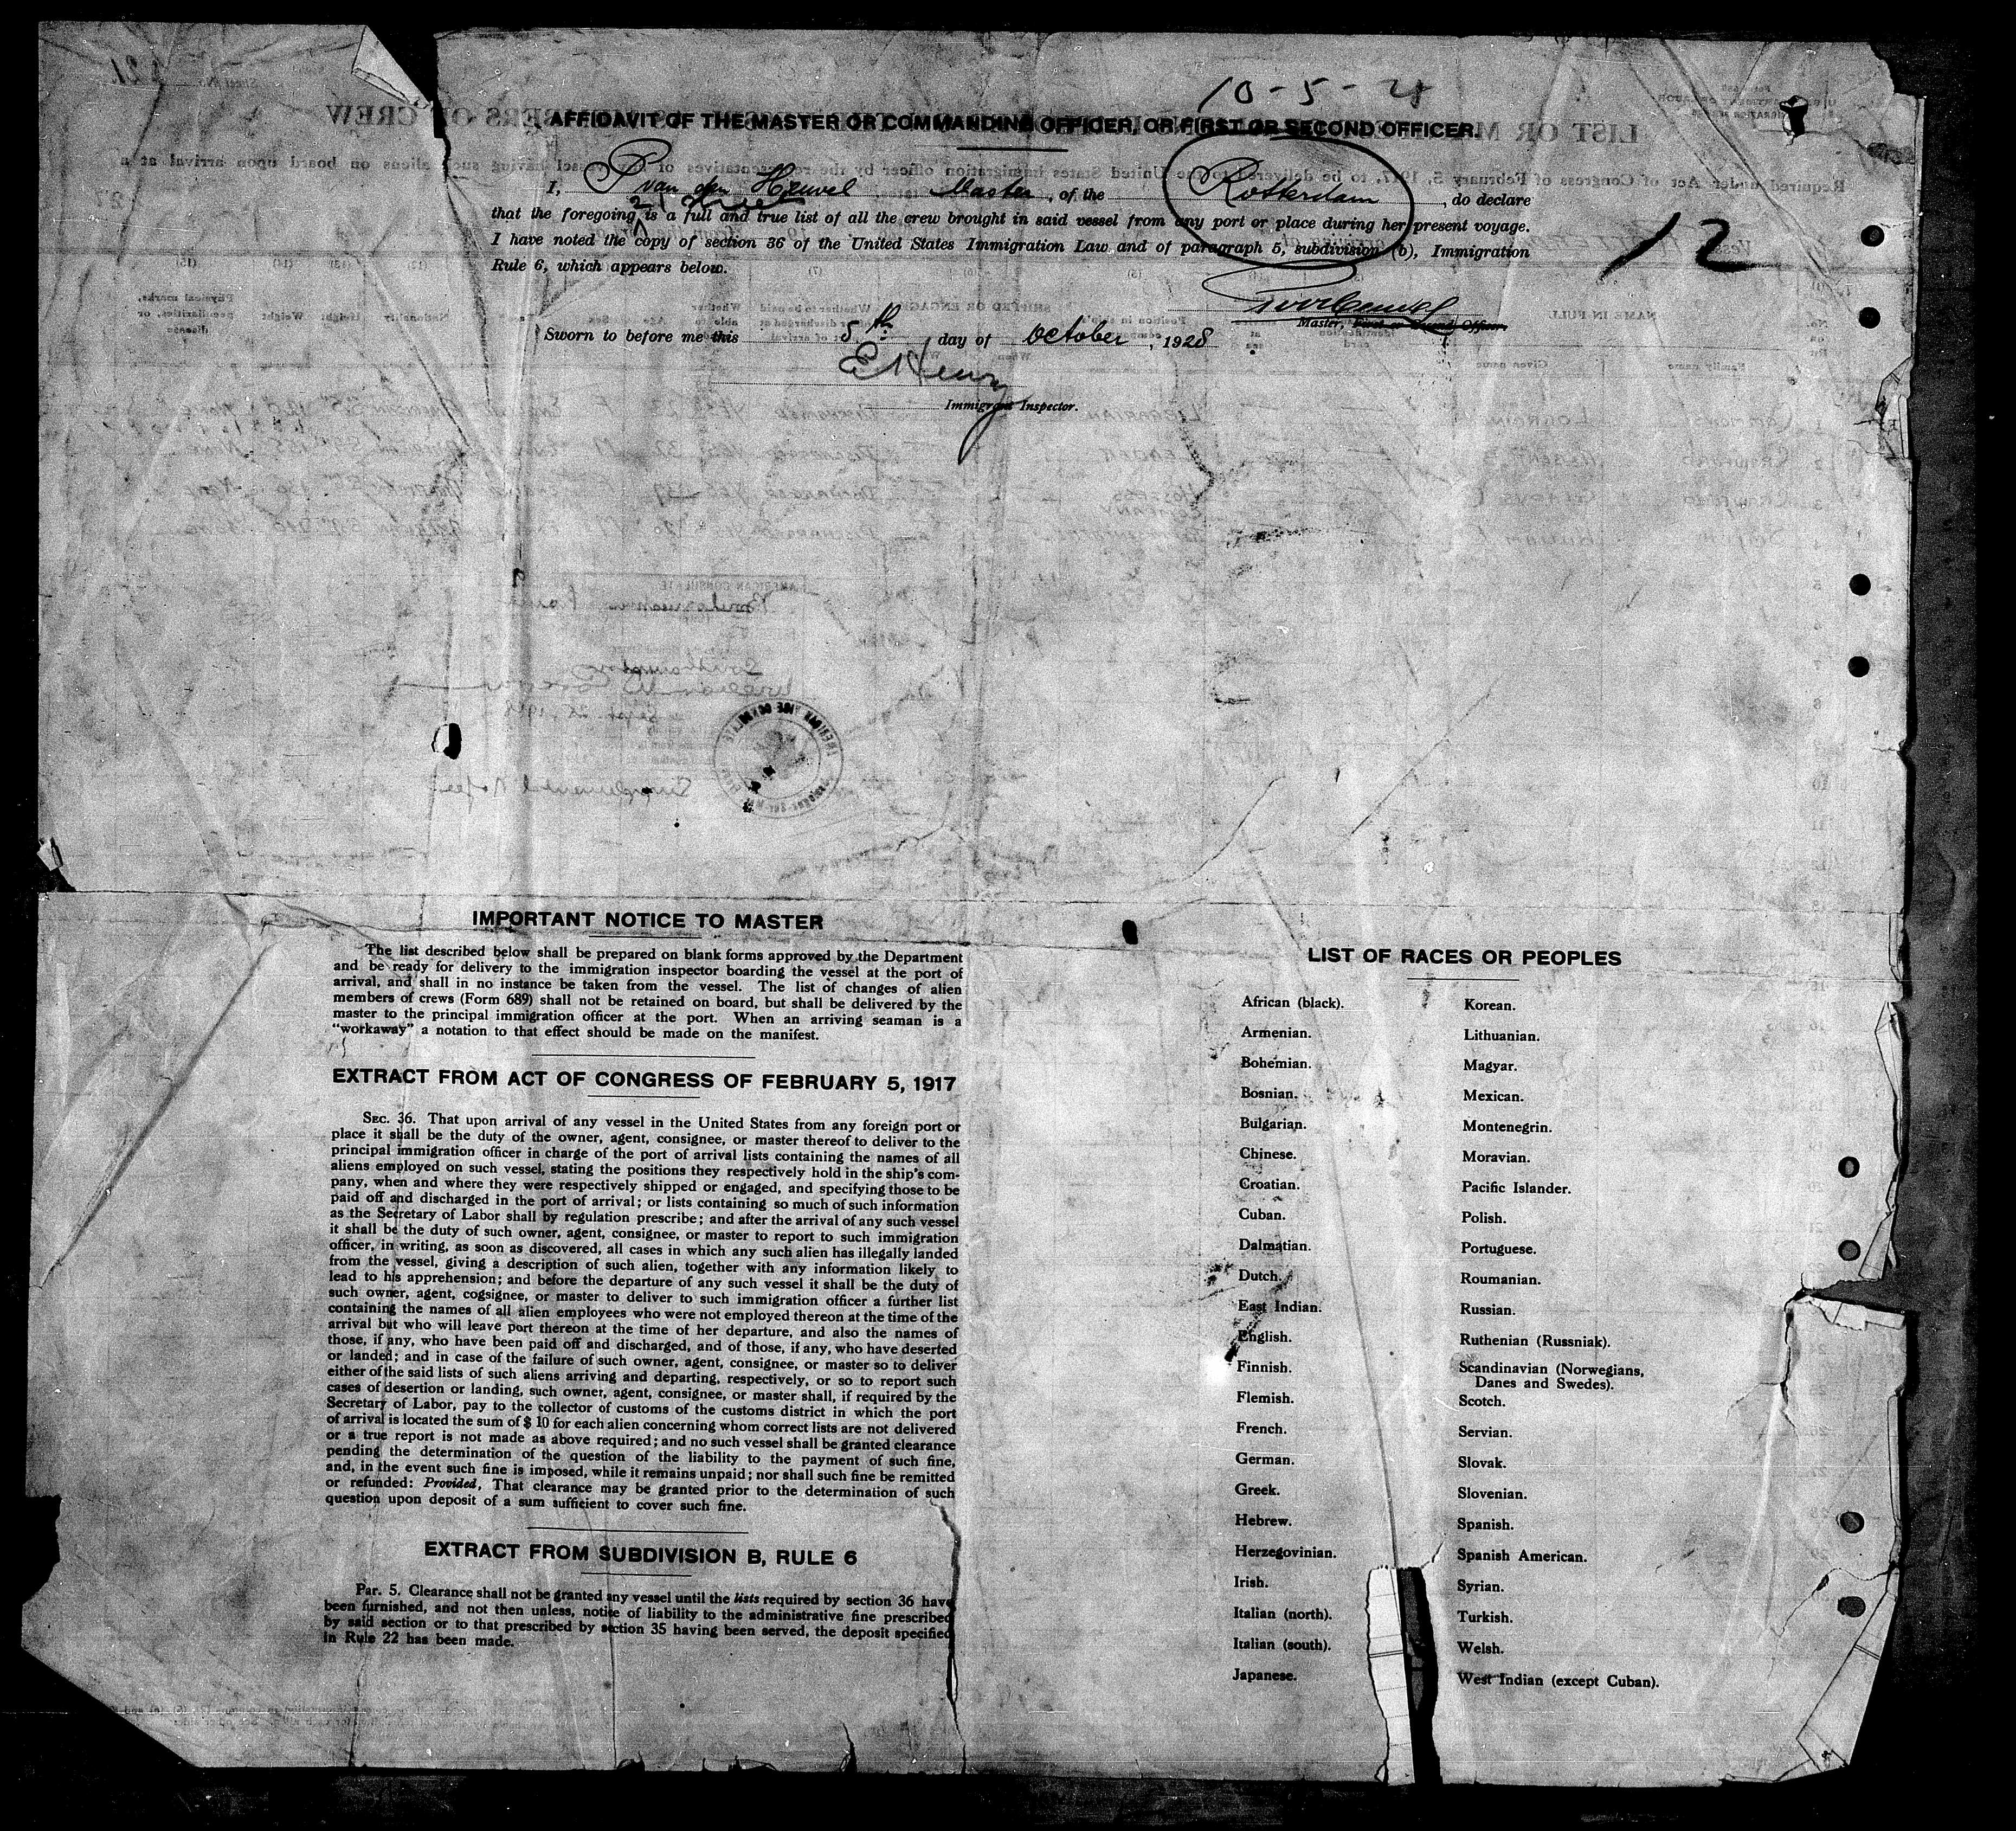 10-5-28
AFFIDAVIT OF THE MASTER OR COMMANDING OFFICER, OR FIRST OR SECOND OFFICER.
I, P van den Heuvel Master, of the Rotterdam, do declare
21 sheets
that the foregoing is a full and true list of all the crew brought in said vessel from any port or place during her present voyage.
I have noted the copy of section 36 of the United States Immigration Law and of paragraph 5, subdivision (b), Immigration
Rule 6, which appears below.
12
Master, First or Second Officer.
Sworn to before me this 5th day of October, 1928
E Henry
Immigrant Inspector.
IMPORTANT NOTICE TO MASTER
The list described below shall be prepared on blank forms approved by the Department
and be ready for delivery to the immigration inspector boarding the vessel at the port of
arrival, and shall in no instance be taken from the vessel. The list of changes of alien
members of crews (Form 689) shall not be retained on board, but shall be delivered by the
master to the principal immigration officer at the port. When an arriving seaman is a
"workaway" a notation to that effect should be made on the manifest.
EXTRACT FROM ACT OF CONGRESS OF FEBRUARY 5, 1917
SEC. 36. That upon arrival of any vessel in the United States from any foreign port or
place it shall be the duty of the owner, agent, consignee, or master thereof to deliver to the
principal immigration officer in charge of the port of arrival lists containing the names of all
aliens employed on such vessel, stating the positions they respectively hold in the ship's com-
pany, when and where they were respectively shipped or engaged, and specifying those to be
paid off and discharged in the port of arrival; or lists containing so much of such information
as the Secretary of Labor shall by regulation prescribe; and after the arrival of any such vessel
it shall be the duty of such owner, agent, consignee, or master to report to such immigration
officer, in writing, as soon as discovered, all cases in which any such alien has illegally landed
from the vessel, giving a description of such alien, together with any information likely to
lead to his apprehension; and before the departure of any such vessel it shall be the duty of
such owner, agent, cogsignee, or master to deliver to such immigration officer a further list
containing the names of all alien employees who were not employed thereon at the time of the
arrival but who will leave port thereon at the time of her departure, and also the names of
those, if any, who have been paid off and discharged, and of those, if any, who have deserted
or landed; and in case of the failure of such owner, agent, consignee, or master so to deliver
either of the said lists of such aliens arriving and departing, respectively, or so to report such
cases of desertion or landing, such owner, agent, consignee, or master shall, if required by the
Secretary of Labor, pay to the collector of customs of the customs district in which the port
of arrival is located the sum of $ 10 for each alien concerning whom correct lists are not delivered
or a true report is not made as above required; and no such vessel shall be granted clearance
pending the determination of the question of the liability to the payment of such fine,
and, in the event such fine is imposed, while it remains unpaid; nor shall such fine be remitted
or refunded: Provided, That clearance may be granted prior to the determination of such
question upon deposit of a sum sufficient to cover such fine.
EXTRACT FROM SUBDIVISION B, RULE 6
Par. 5. Clearance shall not be granted any vessel until the lists required by section 36 have
been furnished, and not then unless, notice of liability to the administrative fine prescribed
by said section or to that prescribed by section 35 having been served, the deposit specified
in Rule 22 has been made.
LIST OF RACES OR PEOPLES
African (black).
Armenian.
Bohemian.
Bosnian.
Bulgarian.
Chinese.
Croatian.
Cuban.
Dalmatian.
Dutch.
East Indian.
English.
Finnish.
Flemish.
French.
German.
Greek.
Hebrew.
Herzegovinian.
Irish.
Italian (north).
Italian (south).
Japanese.
Korean.
Lithuanian.
Magyar.
Mexican.
Montenegrin.
Moravian.
Pacific Islander.
Polish.
Portuguese.
Roumanian.
Russian.
Ruthenian (Russniak).
Scandinavian (Norwegians,
Danes and Swedes).
Scotch.
Servian.
Slovak.
Slovenian.
Spanish.
Spanish American.
Syrian.
Turkish.
Welsh.
West Indian (except Cuban).